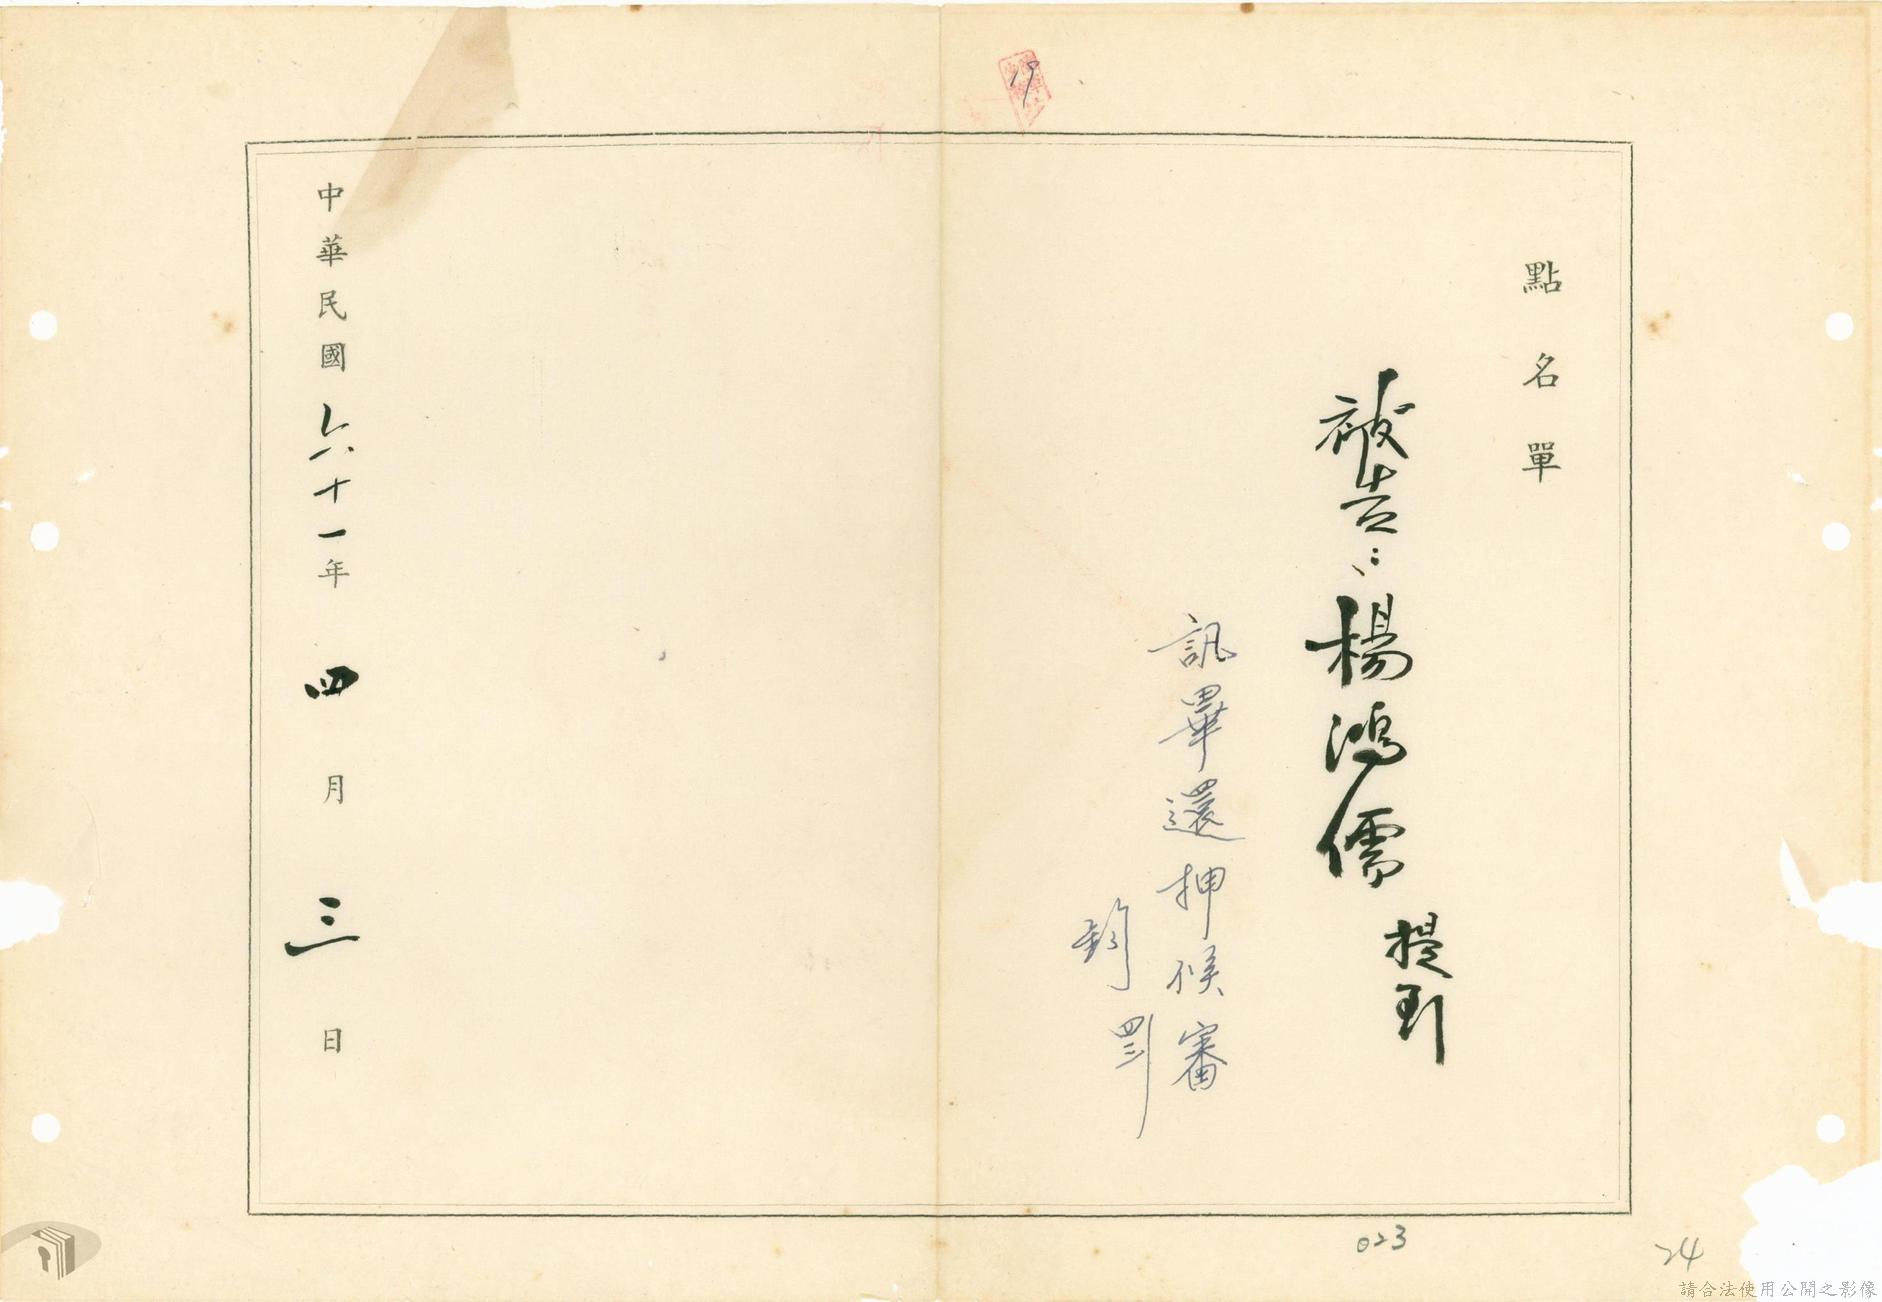 點名單
被告：楊鴻儒
提到
訊畢還押候審
鈞
四三
中華民國六十一年四月三日
19
023
24
請合法使用公開之影像